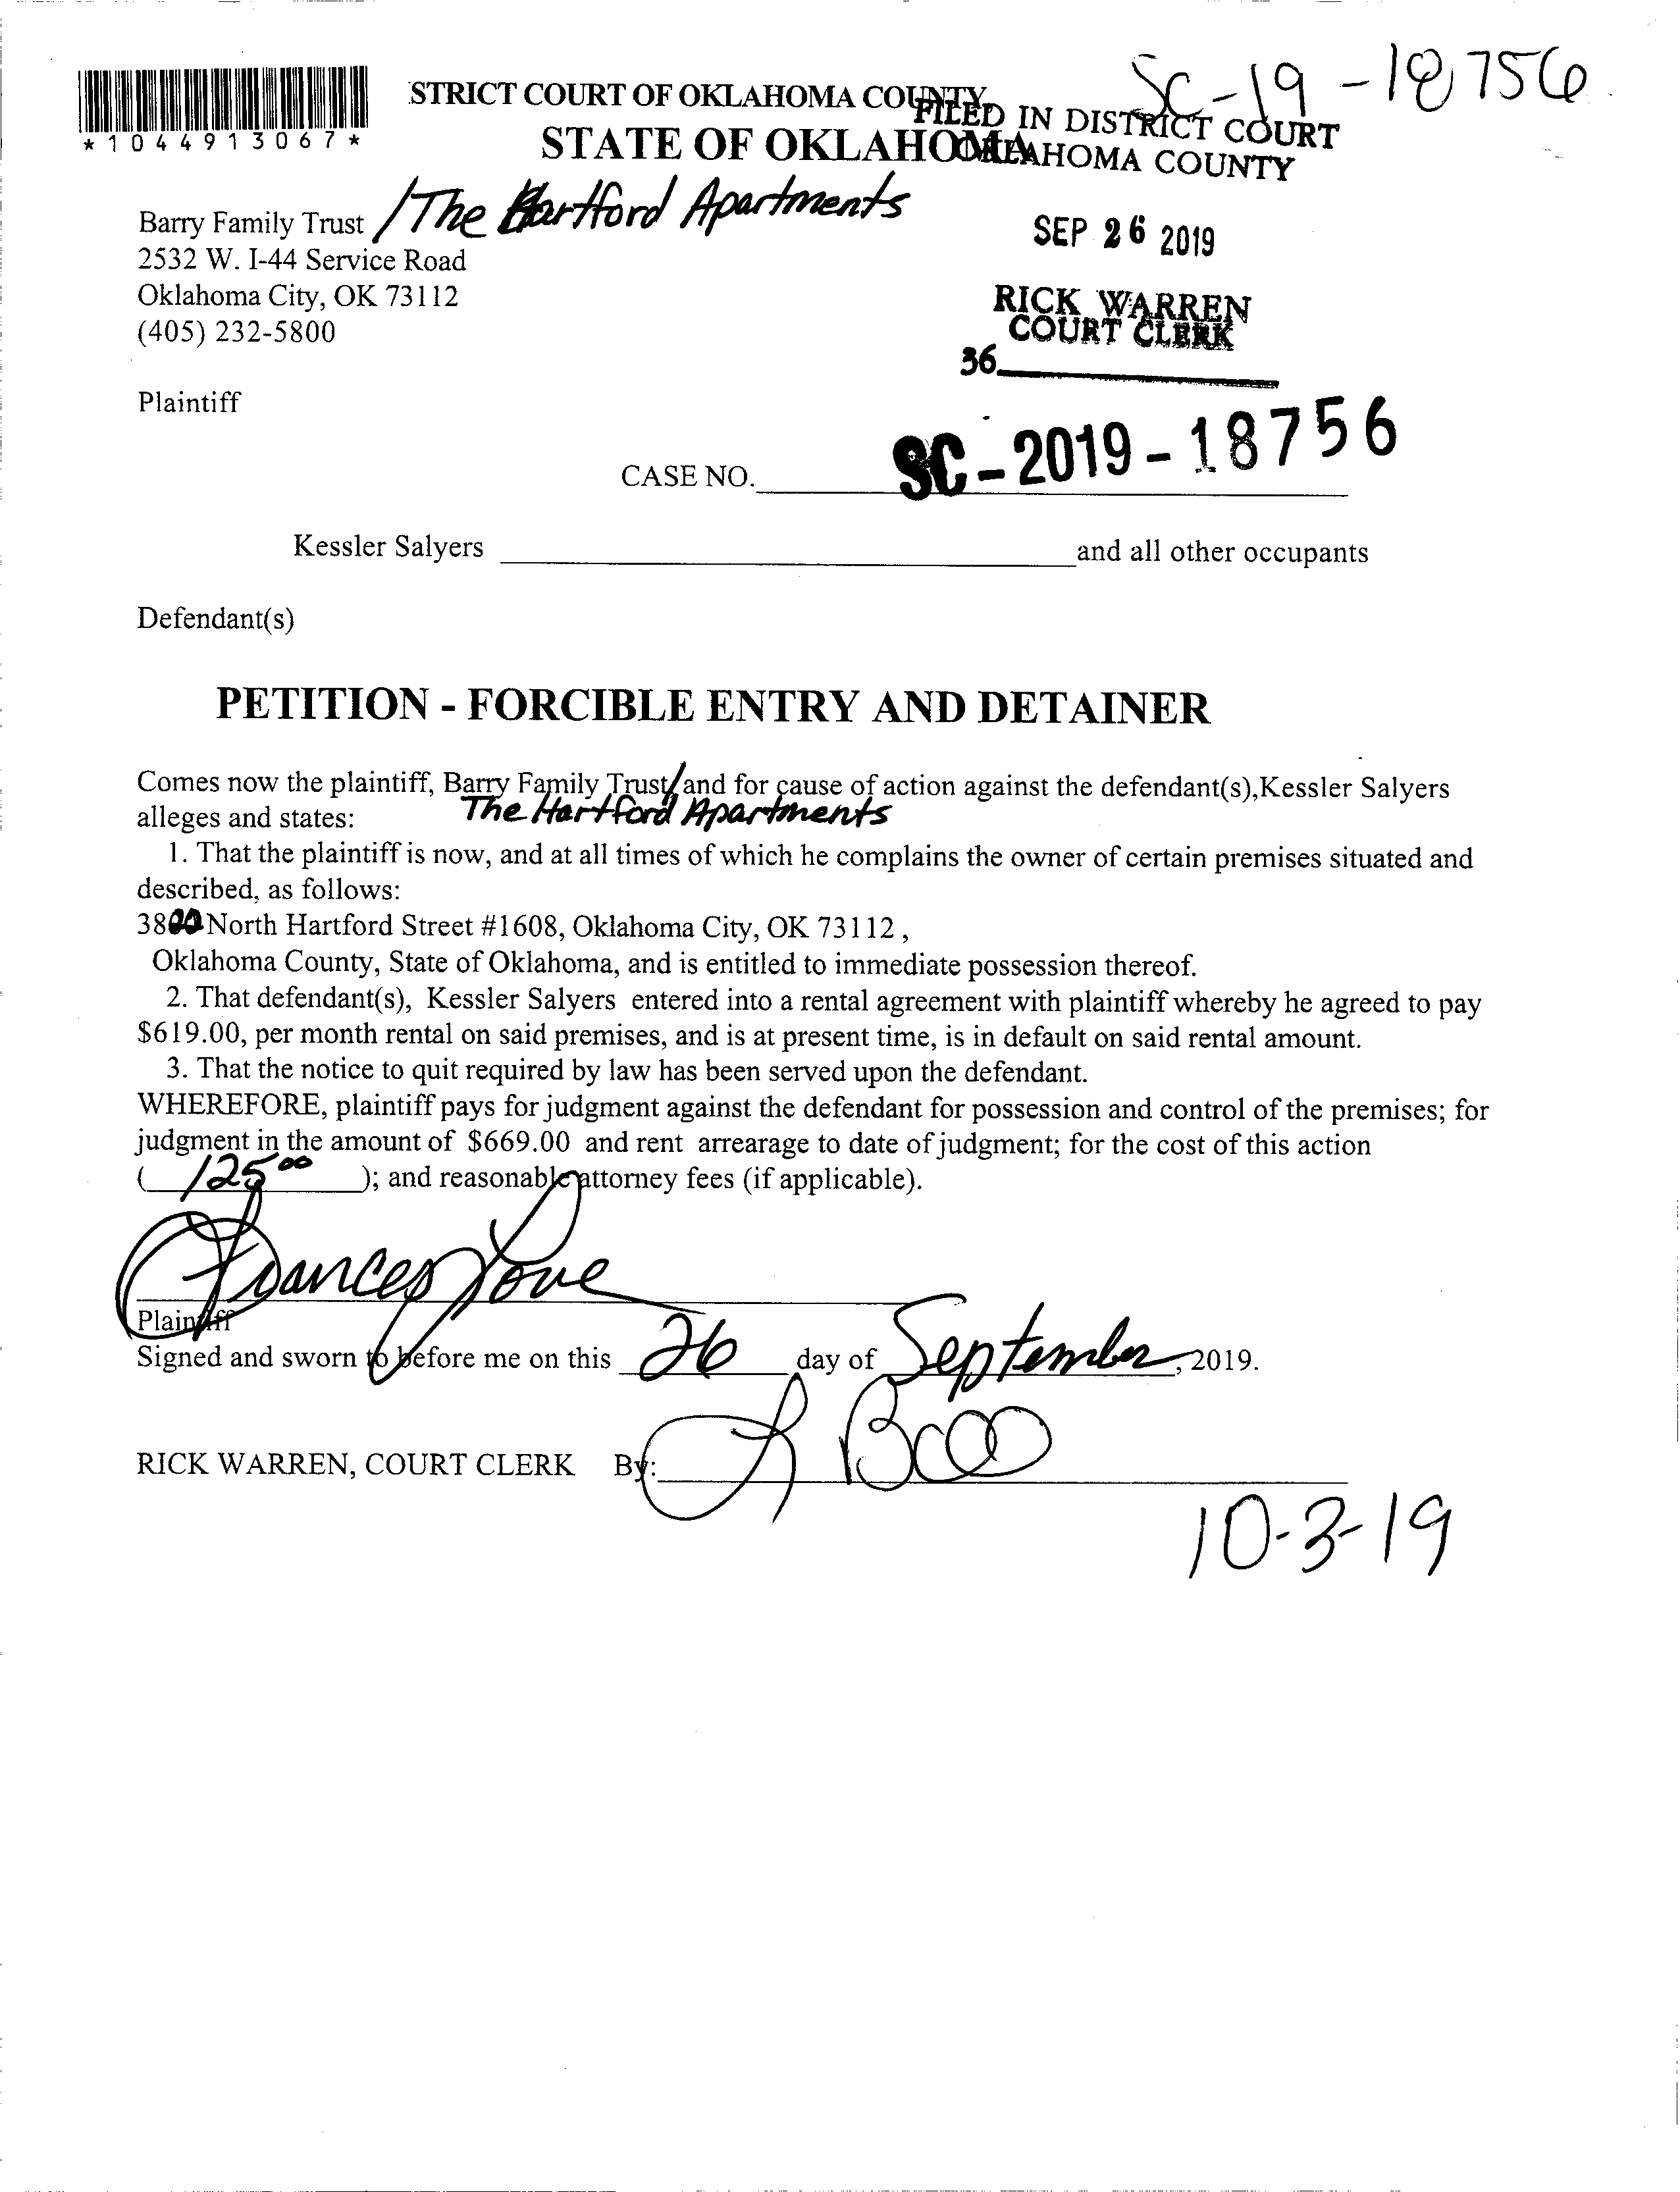 SC-19-18756
STRICT COURT OF OKLAHOMA COUNTY
STATE OF OKLAHOMA
*1044913067*
FILED IN DISTRICT COURT
OKLAHOMA COUNTY
Barry Family Trust /The Hartford Apartments
2532 W. I-44 Service Road
Oklahoma City, OK 73112
(405) 232-5800
SEP 26 2019
RICK WARREN
COURT CLERK
36
Plaintiff
CASE NO. SC-2019-18756
Kessler Salyers and all other occupants
Defendant(s)
PETITION - FORCIBLE ENTRY AND DETAINER
Comes now the plaintiff, Barry Family Trust/and for cause of action against the defendant(s),Kessler Salyers
The Hartford Apartments
alleges and states:
1. That the plaintiff is now, and at all times of which he complains the owner of certain premises situated and
described, as follows:
3800 North Hartford Street #1608, Oklahoma City, OK 73112 ,
Oklahoma County, State of Oklahoma, and is entitled to immediate possession thereof.
2. That defendant(s), Kessler Salyers entered into a rental agreement with plaintiff whereby he agreed to pay
$619.00, per month rental on said premises, and is at present time, is in default on said rental amount.
3. That the notice to quit required by law has been served upon the defendant.
WHEREFORE, plaintiff pays for judgment against the defendant for possession and control of the premises; for
judgment in the amount of $669.00 and rent arrearage to date of judgment; for the cost of this action
( 125.00 ); and reasonable attorney fees (if applicable).
Frances Love
Plaintiff
Signed and sworn to before me on this 26 day of September, 2019.
RICK WARREN, COURT CLERK By:
10-3-19